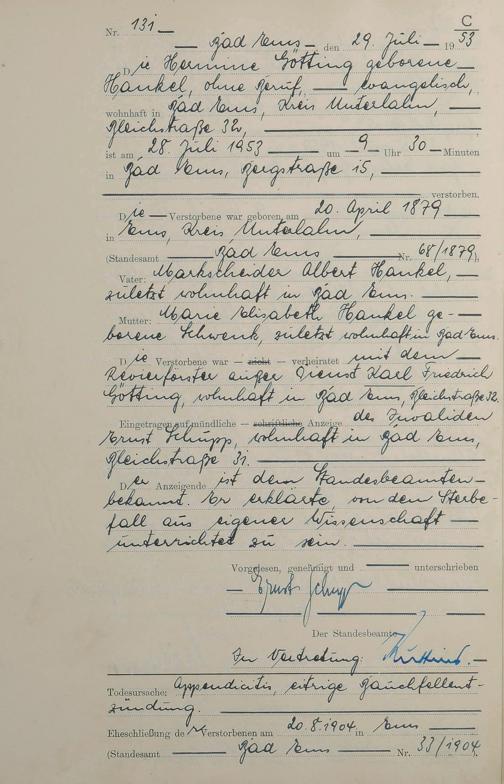 C
Nr. 131
Bad Ems den 29. Juli 1953
Die Hermine Götting geborene
Hankel, ohne Beruf, evangelisch,
wohnhaft in Bad Ems, Kreis Unterlahn,
Bleichstraße 32,
ist am 28. Juli 1953 um 9 Uhr 30 Minuten
in Bad Ems, Bergstraße 15,
verstorben.
Die Verstorbene war geboren am 20. April 1879
in Ems, Kreis Unterlahn,
(Standesamt Bad Ems Nr. 68/1879)
Vater: Markscheider Albert Hankel,
zuletzt wohnhaft in Bad Ems.
Mutter: Marie Elisabeth Hankel ge-
borene Schwenk, zuletzt wohnhaft in Bad Ems.
Die Verstorbene war — nicht — verheiratet mit dem
Revierförster außer Dienst Karl Friedrich
Götting, wohnhaft in Bad Ems, Bleichstraße 32.
Eingetragen auf mündliche — schriftliche — Anzeige des Invaliden
Ernst Schupp, wohnhaft in Bad Ems,
Bleichstraße 31.
Der Anzeigende ist dem Standesbeamten
bekannt. Er erklärte, von dem Sterbe-
fall aus eigener Wissenschaft
unterrichtet zu sein.
Vorgelesen, genehmigt und unterschrieben
Ernst Schupp
Der Standesbeamte
In Vertretung:
Todesursache: Appendicitis, eitrige Bauchfellent-
zündung.
Eheschließung der Verstorbenen am 20.8.1904 in Ems
(Standesamt Bad Ems Nr. 33/1904).